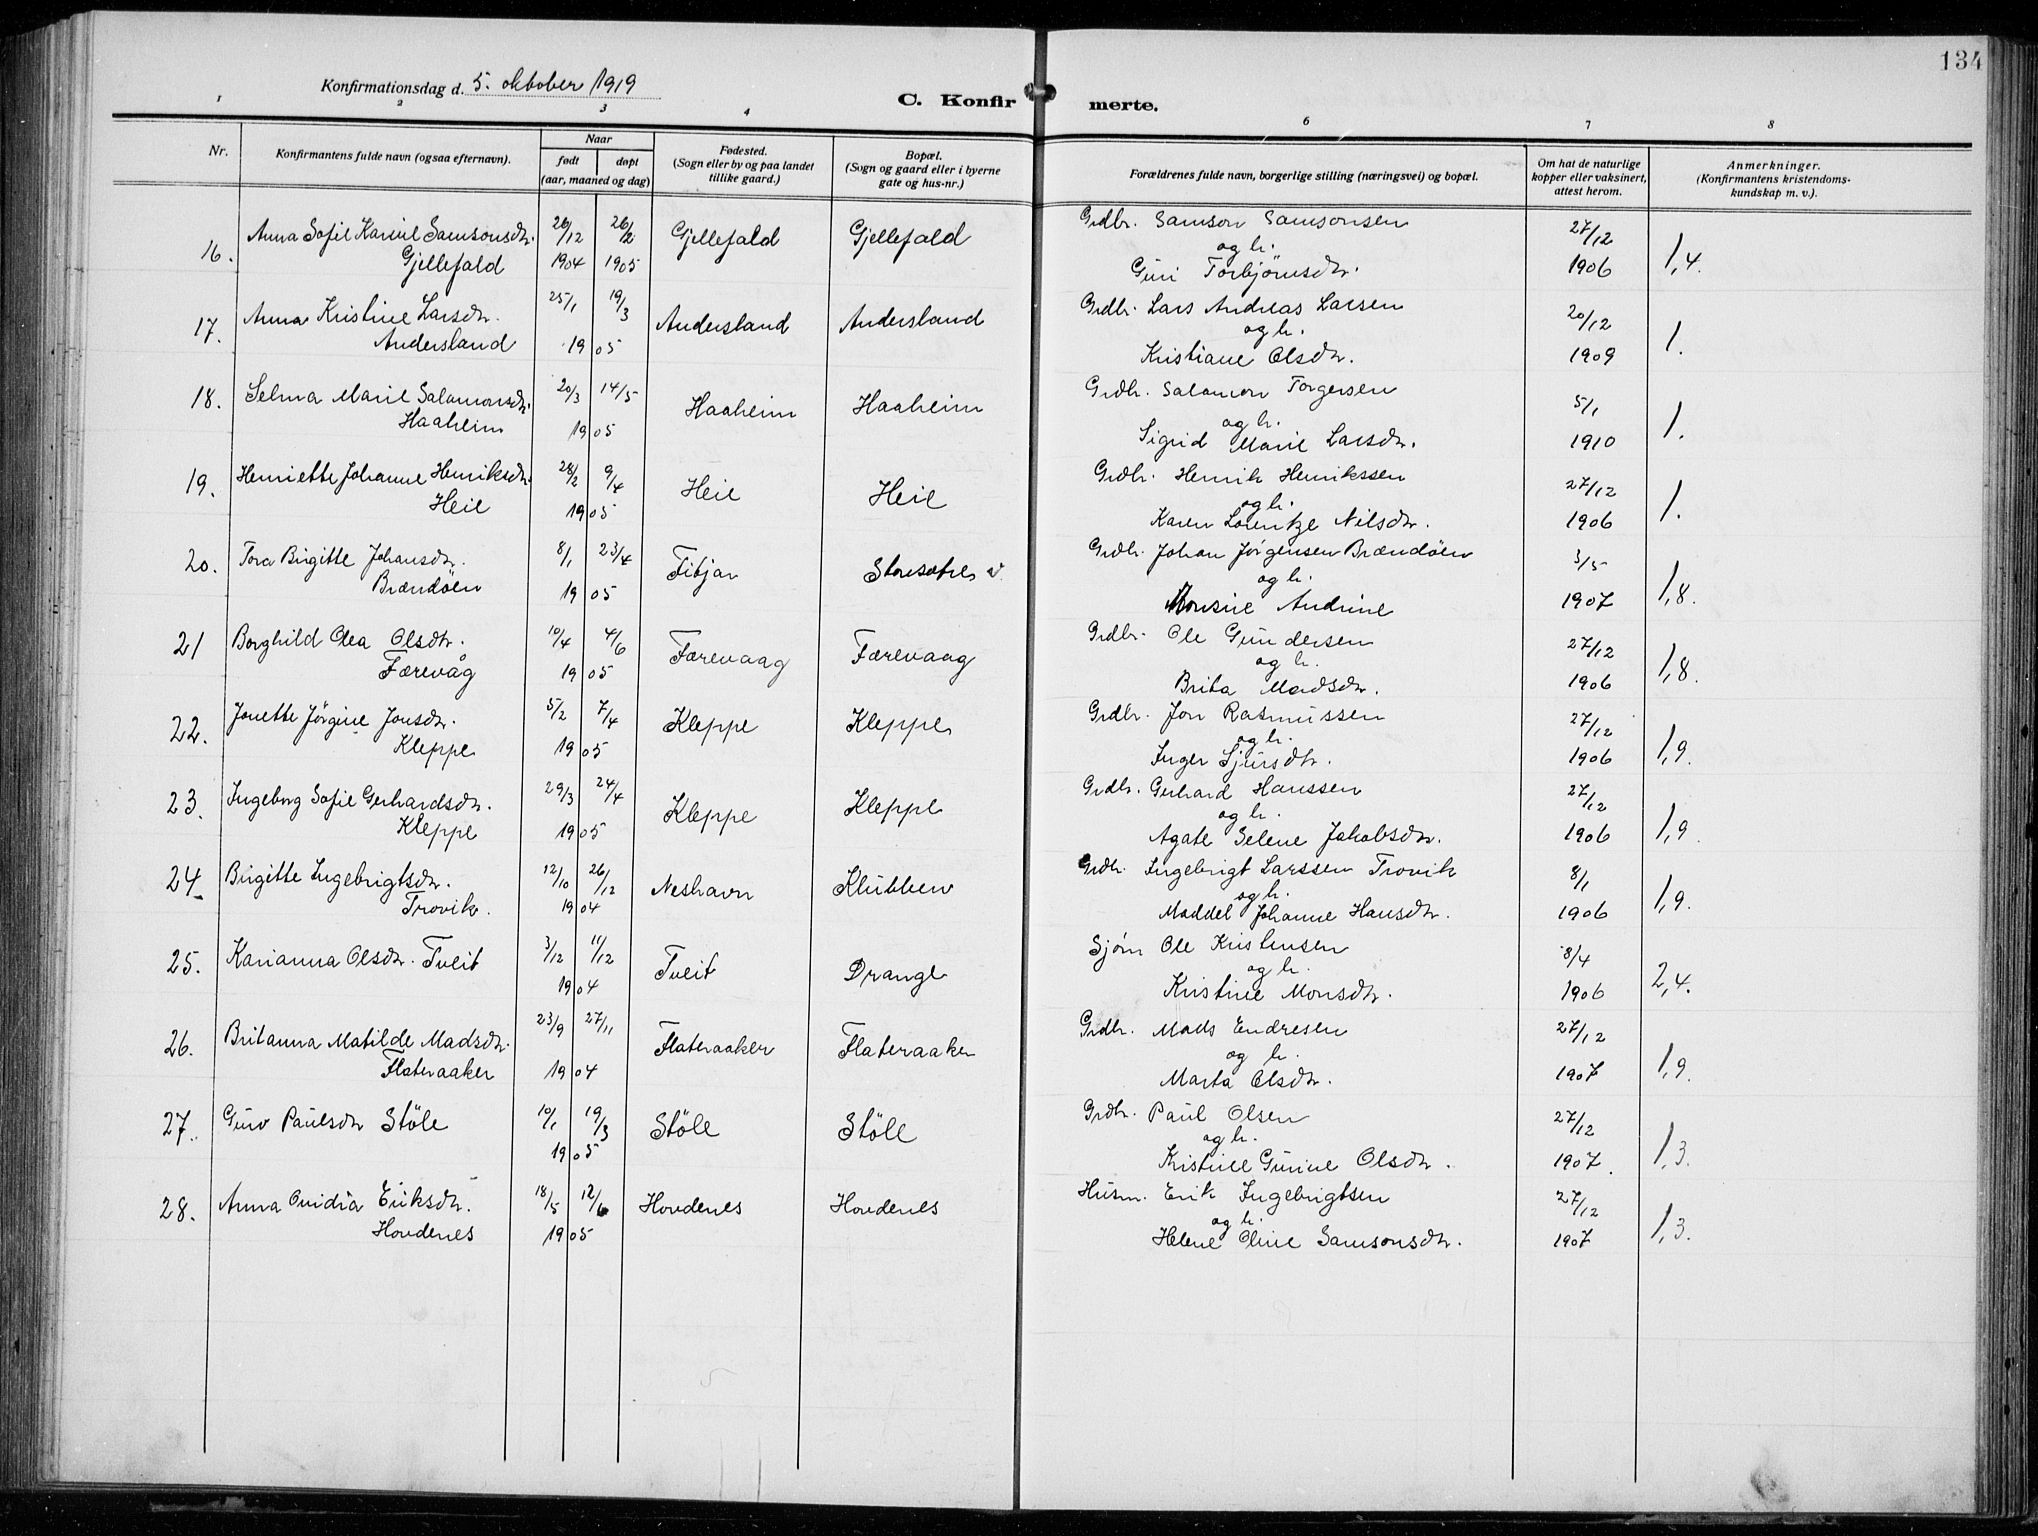 134
Konfirmationsdag d. 5. oktober 1919
C. Konfirmerte.
1 2 3 4 6 7 8
Nr.
Konfirmantens fulde navn (ogsaa efternavn).
Naar
født døpt
(aar, maaned og dag)
Fødested.
(Sogn eller by og paa landet
tillike gaard.)
Bopæl.
(Sogn og gaard eller i byerne
gate og hus-nr.)
Forældrenes fulde navn, borgerlige stilling (næringsvei) og bopæl.
Om hat de naturlige
kopper eller vaksinert,
attest herom.
Anmerkninger.
(Konfirmantens kristendoms-
kundskap m. v.).
16. Anna Sofie Karine Samsonsdtr. 26/12 26/2 Gjellefald Gjellefald Grdbr. Samson Samsonsen 27/12 1,4.
Gjellefald 1904 1905 og h.
Guri Torbjörnsdtr. 1906
17. Anna Kristine Larsdtr. 25/1 19/3 Andersland Andersland Grdbr. Lars Andreas Larsen 20/12 1.
Andersland 1905 og h.
Kristiane Olsdtr. 1909
18. Selma Marie Salamonsdtr. 20/3 14/5 Haaheim Haaheim Grdbr. Salamon Torgersen 5/1 1.
Haaheim 1905 og h.
Sigrid Marie Larsdtr. 1910
19. Henriette Johanne Henriksdtr. 28/2 9/4 Heie Heie Grdbr. Henrik Henrikssen 27/12 1.
Heie 1905 og h.
Karen Lorentze Nilsdtr. 1906
20. Tora Birgitte Johansdtr. 8/1 23/4 Fitjar Storsætre Grdbr. Johan Jørgensen Brændöen 3/5 1,8.
Brændöen 1905 og h.
Monsine Andrine 1907
21 Borghild Olea Olsdtr. 10/4 4/6 Færevaag Færevaag Grdbr. Ole Gundersen 27/12 1,8.
Færevåg 1905 og h.
Brita Madsdtr. 1906
22. Jonette Jörgine Jonsdtr. 5/2 7/4 Kleppe Kleppe Grdbr. Jon Rasmussen 27/12 1,9.
Kleppe 1905 og h.
Inger Sjursdtr. 1906
23. Ingeborg Sofie Gerhardsdtr. 29/3 24/4 Kleppe Kleppe Grdbr. Gerhard Hanssen 27/12 1,9.
Kleppe 1905 og h.
Agate Selene Jakobsdtr. 1906
24 Birgitte Ingebrigtsdtr. 12/10 26/12 Neshavn Klubben Grdbr. Ingebrigt Larssen Trovik 8/1 1,9.
Trovik. 1904 og h.
Maddel Johanne Hansdtr. 1906
25. Karianna Olsdtr. Tveit 3/12 11/12 Tveit Drange Sjøm Ole Kristensen 8/4 2,4.
1904 og h.
Kristine Monsdtr. 1906
26. Britanna Matilde Madsdtr. 23/9 27/11 Flateraaker Flateraaker Grdbr. Mads Endresen 27/12 1,9.
Flateraaker 1904 og h.
Marta Olsdtr. 1907
27. Guro Paulsdtr Stöle 10/1 19/3 Stöle Stöle Grdbr. Paul Olsen 27/12 1,3.
1905 og h.
Kristine Gurine Olsdtr. 1907.
28. Anna Ovidia Eriksdtr. 18/5 12/6 Hovdenes Hovdenes Husm. Erik Ingebrigtsen 27/12 1,3.
Hovdenes 1905 og h.
Helene Oline Samsonsdtr. 1907